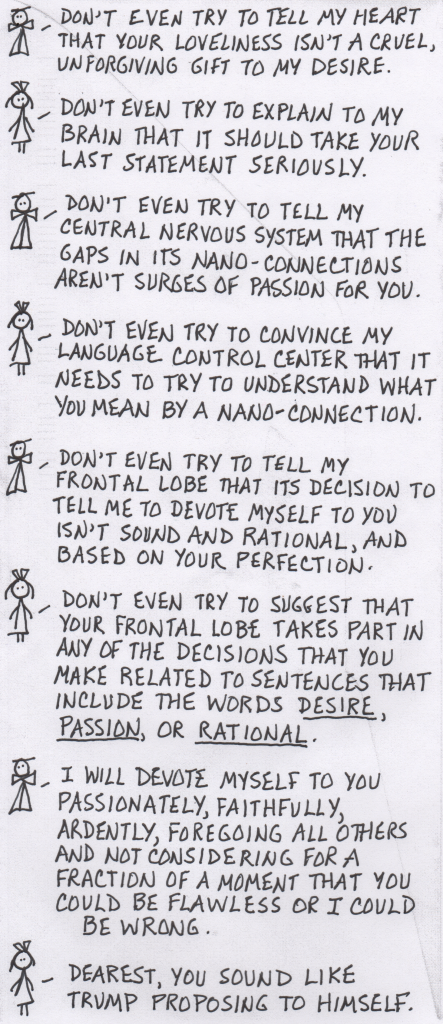 DON'T EVEN TRY TO TELL MY HEART
THAT YOUR LOVELINESS ISN'T A CRUEL,
UNFORGIVING GIFT TO MY DESIRE.
DON'T EVEN TRY TO EXPLAIN TO MY
BRAIN THAT IT SHOULD TAKE YOUR
LAST STATEMENT SERIOUSLY.
DON'T EVEN TRY TO TELL MY
CENTRAL NERVOUS SYSTEM THAT THE
GAPS IN ITS NANO-CONNECTIONS
AREN'T SURGES OF PASSION FOR YOU.
DON'T EVEN TRY TO CONVINCE MY
LANGUAGE CONTROL CENTER THAT IT
NEEDS TO TRY TO UNDERSTAND WHAT
YOU MEAN BY A NANO-CONNECTION.
DON'T EVEN TRY TO TELL MY
FRONTAL LOBE THAT ITS DECISION TO
TELL ME TO DEVOTE MYSELF TO YOU
ISN'T SOUND AND RATIONAL, AND
BASED ON YOUR PERFECTION.
DON'T EVEN TRY TO SUGGEST THAT
YOUR FRONTAL LOBE TAKES PART IN
ANY OF THE DECISIONS THAT YOU
MAKE RELATED TO SENTENCES THAT
INCLUDE THE WORDS DESIRE,
PASSION, OR RATIONAL.
I WILL DEVOTE MYSELF TO YOU
PASSIONATELY, FAITHFULLY,
ARDENTLY, FOREGOING ALL OTHERS
AND NOT CONSIDERING FOR A
FRACTION OF A MOMENT THAT YOU
COULD BE FLAWLESS OR I COULD
BE WRONG.
DEAREST, YOU SOUND LIKE
TRUMP PROPOSING TO HIMSELF.